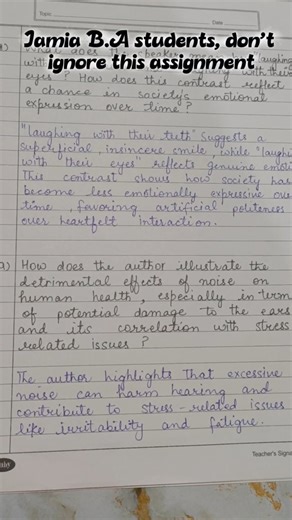 Topic
Date
Jamia B.A students, don't
ignore this assignment
with their
eyes"? How does this contrast reflect
a chance in society's emotional
expression over time?
"laughing with their teeth" Suggests a
superficial, insincere smile, while "laughi
with their eyes" reflects genuine emoti
This contrast shows how society has
become less emotionally expressive ove
time, favoring artificial politeness
over heartfelt interaction.
How does the author illustrate the
detrimental effects of noise on
human health, especially in term
of potential damage to the ears
and its correlation with stress
related issues?
The author highlights That excessive
noise can harm hearing and
contribute to stress-related issues
like irritability and fatigue.
Teacher's Signa